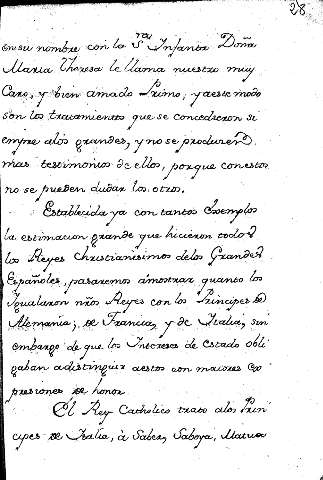 28
en su nombre con la S.ra Infanta Doña
Maria Theresa le llama nuestro muy
Caro, y bien amado Primo, y a este modo
son los tratamientos que se concedieron si
empre alos grandes, y no se producen
mas testimonios de ellos, porque con estos
no se pueden dudar los otros.
Establecida ya con tantos Exemplos
la estimacion grande que hicieron todos
los Reyes Christianisimos delos Grandes
Españoles, pasaremos á mostrar quanto los
Igualaron nr̃os Reyes con los Principes de
Alemania, de Francia, y de Italia, sin
embargo de que los Intereses de estado obli
gaban a distinguir a estos con maiores ex
presiones de honor
El Rey Catholico trato alos Prin
cipes de Italia, à Saber, Saboya, Mantua